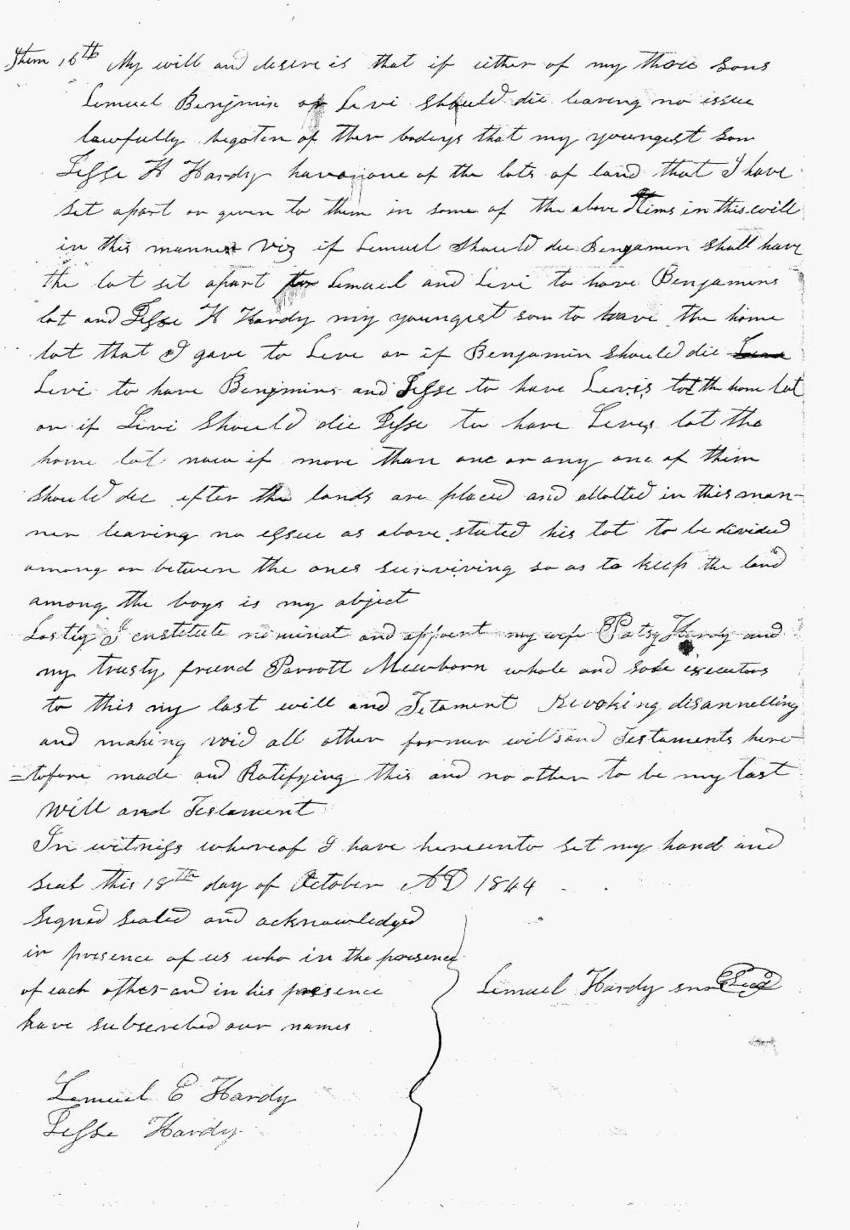 Item 16th My will and desire is that if either of my three sons
Lemuel Benjmin or Levi should die leaving no issue
lawfully begoten of ther bodeys that my youngest son
Jesse H Hardy have one of the lots of land that I have
set apart or given to them in some of the above Items in this will
in this manner Viz if Lemuel should die Bengamin shall have
the lot set apart for Lemuel and Levi to have Benjamins
lot and Jesse H Hardy my youngest son to have the home
lot that I gave to Levi or if Benjamin should die
Levi to have Benjmins and Jesse to have Levis lot the home lot
or if Levi should die Jesse to have Levis lot the
home lot now if more than one or any one of them
should die after the lands are placed and allotted in this man-
ner leaving no essue as above stated his lot to be divided
among or between the ones surviving so as to keep the land
among the boys is my object
Lastly I enstitute nominat and appoint my wife Patsy Hardy and
my trusty friend Parrott Mewborn whole and sole executors
to this my last will and Tetament Revoking disannelling
and making void all other former wills and Testaments here-
=tofore made and Ratifying this and no other to be my last
Will and Testament
In witness whereof I have hereunto set my hand and
seal this 18th day of October AD 1844
Signed sealed and acknowledged
in presence of us who in the presence
of each other and in his presence
have subscribed our names
Lemuel Hardy snr Seal
Lemuel E Hardy
Jesse Hardy